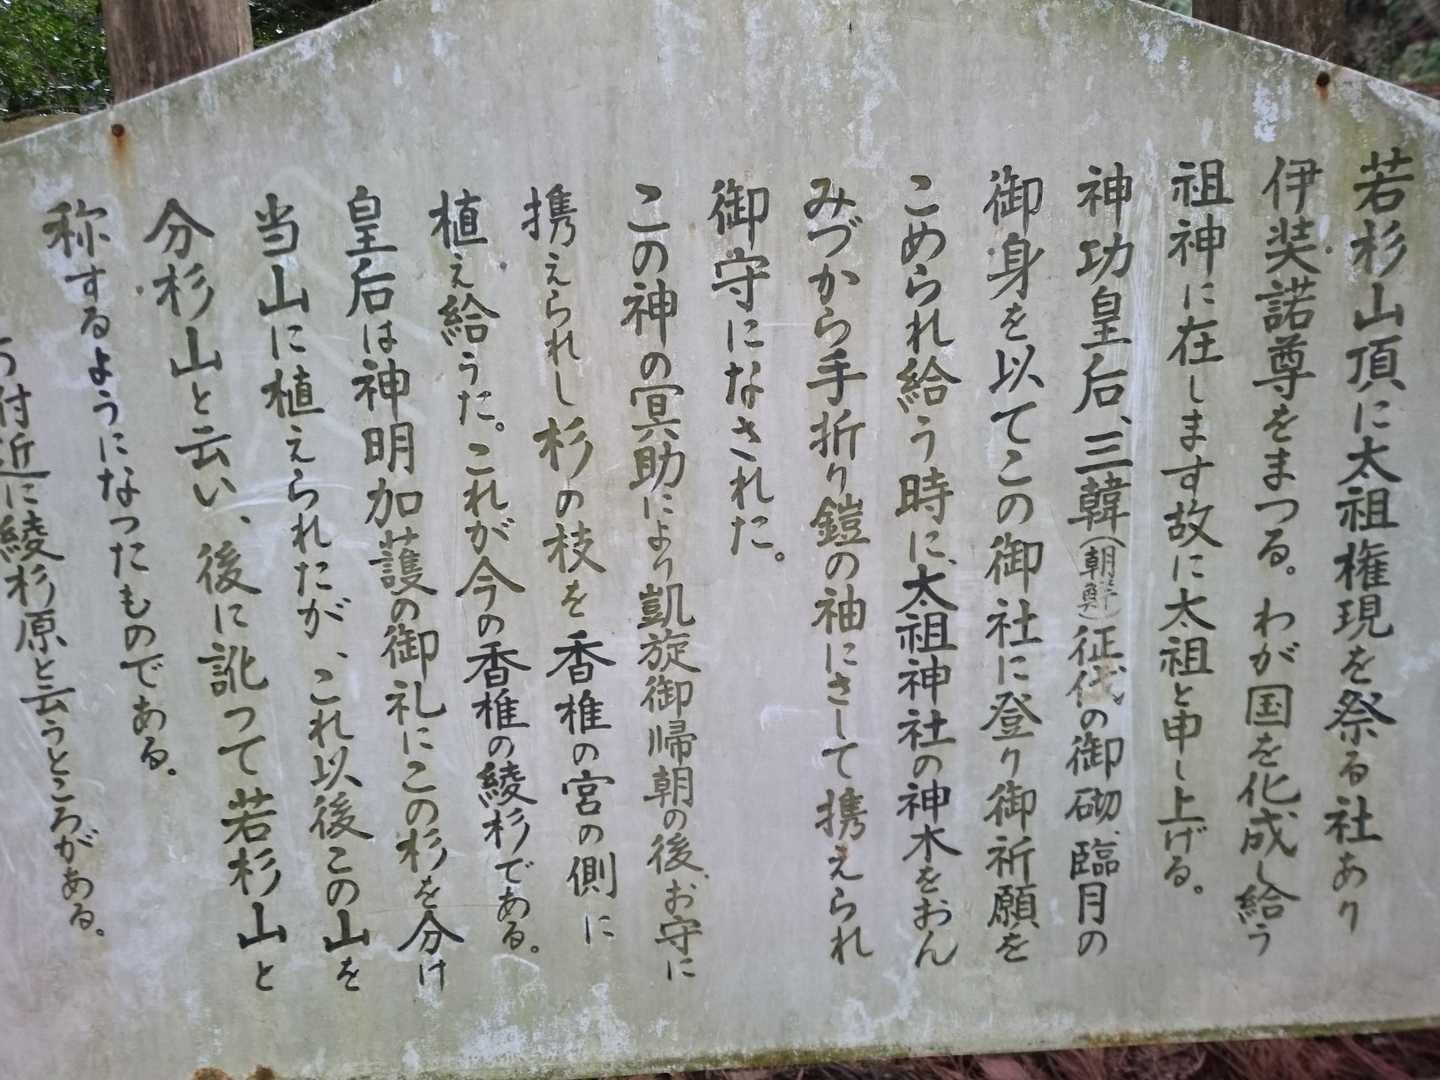 若杉山頂に太祖権現を祭る社あり
伊奘諾尊をまつる。わが国を化成し給う
祖神に在します故に太祖と申し上げる。
神功皇后、三韓(朝鮮)征伐の御砌、臨月の
御身を以てこの御社に登り御祈願を
こめられ給う時に、太祖神社の神木をおん
みづから手折り鎧の袖にさして携えられ
御守になされた。
この神の冥助により凱旋御帰朝の後、お守に
携えられし杉の枝を香椎の宮の側に
植え給うた。これが今の香椎の綾杉である。
皇后は神明加護の御礼にこの杉を分け
当山に植えられたが、これ以後この山を
分杉山と云い、後に訛つて若杉山と
称するようになつたものである。
付近に綾杉原と云うところがある。